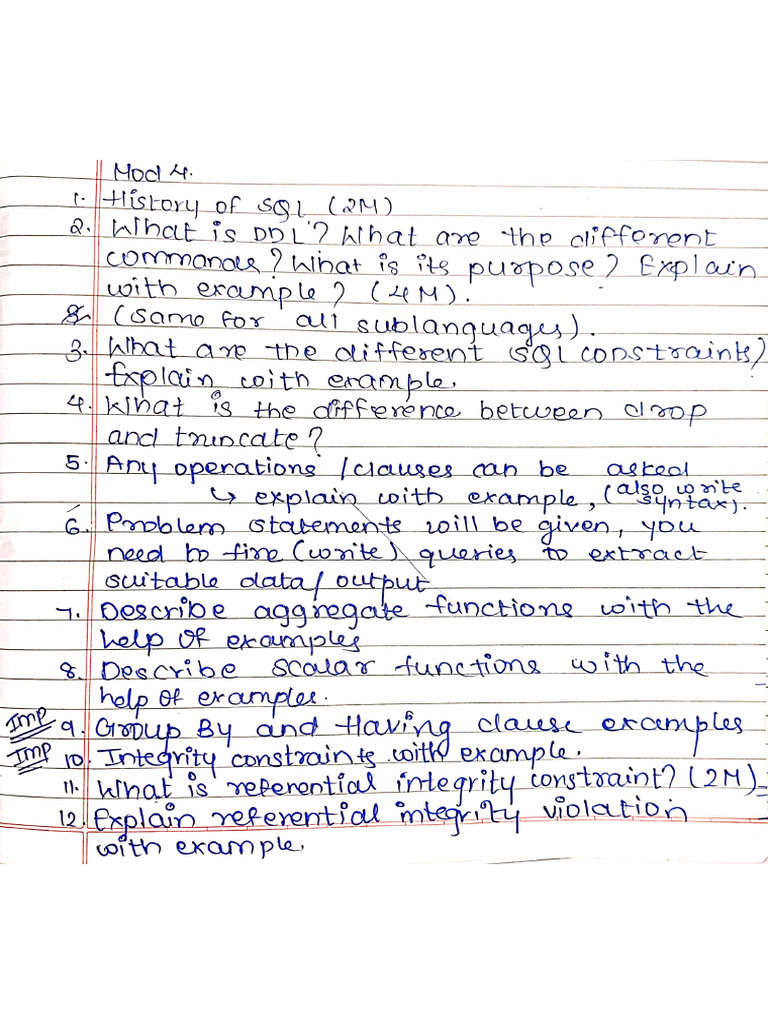 Mod 4.
1. History of SQL (2M)
2. What is DDL? What are the different
commands? What is its purpose? Explain
with example? (4M).
(Same for all sublanguages).
3. What are the different SQL constraints?
Explain with example.
4. What is the difference between drop
and truncate?
5. Any operations / clauses can be asked
↳ explain with example, (also write
syntax).
6. Problem statements will be given, you
need to fire (write) queries to extract
suitable data/output
7. Describe aggregate functions with the
help of examples
8. Describe scalar functions with the
help of examples.
IMP 9. Group By and Having clause examples
IMP 10. Integrity constraints with example.
11. What is referential integrity constraint? (2M)
12. Explain referential integrity violation
with example.